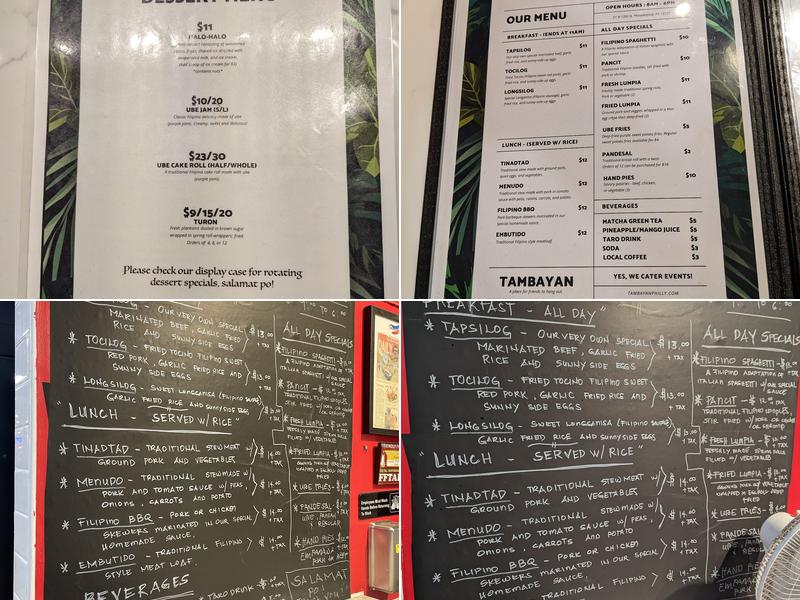 DESSERT MENU
$11
HALO-HALO
evaporated milk, and ice cream.
*contains nuts*
$10/20
UBE JAM (S/L)
Classic Filipino delicacy made of ube
(purple yam). Creamy, sweet and delicious!
$23/30
UBE CAKE ROLL (HALF/WHOLE)
A traditional Filipino cake roll made with ube
(purple yam).
$9/15/20
TURON
Fresh plantains dusted in brown sugar
wrapped in spring roll wrappers, fried.
Orders of 4, 8, or 12
Please check our display case for rotating
dessert specials, salamat po!
OUR MENU
OPEN HOURS : 8AM - 6PM
BREAKFAST - (ENDS AT 11AM)
TAPSILOG $11
Our very own special marinated beef, garlic
fried rice, and sunny-side eggs.
TOCILOG $11
fried rice, and sunny-side eggs.
LONGSILOG $11
fried rice, and sunny-side eggs.
LUNCH - (SERVED W/ RICE)
TINADTAD $12
Traditional stew made with ground pork,
quail eggs, and vegetables.
MENUDO $12
Traditional stew made with pork in tomato
sauce with peas, raisins, carrots, and potatoes.
FILIPINO BBQ $12
Pork barbeque skewers marinated in our
special homemade sauce.
EMBUTIDO $12
Traditional Filipino style meatloaf.
TAMBAYAN
A place for friends to hang out.
ALL DAY SPECIALS
FILIPINO SPAGHETTI $10
A Filipino adaptation of Italian spaghetti with
our special sauce.
PANCIT $10
Traditional Filipino noodles, stir fried with
pork or shrimp.
FRESH LUMPIA $11
Freshly made traditional spring rolls.
Pork or vegetable (2)
FRIED LUMPIA $11
Ground pork and veggies wrapped in a thin
egg crepe then deep-fried (2)
UBE FRIES $5
Deep-fried purple sweet potato fries. Regular
sweet potato fries available for $4
PANDESAL $2
Traditional bread roll with a twist.
Orders of 12 can be purchased for $16
HAND PIES $10
Savory pastries - beef, chicken,
or vegetable (3)
BEVERAGES
MATCHA GREEN TEA $5
PINEAPPLE/MANGO JUICE $5
TARO DRINK $5
SODA $3
LOCAL COFFEE $3
YES, WE CATER EVENTS!
TAMBAYANPHILLY.COM
* TAPSILOG - OUR VERY OWN SPECIAL $13.00
MARINATED BEEF, GARLIC FRIED + TAX
RICE AND SUNNY SIDE EGGS
* TOCILOG - FRIED TOCINO FILIPINO SWEET
RED PORK, GARLIC FRIED RICE AND $13.00
SUNNY SIDE EGGS + TAX
* LONGSILOG - SWEET LONGANISA (FILIPINO SAUSAGE)
GARLIC FRIED RICE AND SUNNY SIDE EGGS
"LUNCH - SERVED W/ RICE"
* TINADTAD - TRADITIONAL STEW MEAT W/ $14.00
GROUND PORK AND VEGETABLES + TAX
* MENUDO - TRADITIONAL STEW MADE W/
PORK AND TOMATO SAUCE W/ PEAS, $14.00
ONIONS, CARROTS AND POTATO + TAX
* FILIPINO BBQ - PORK OR CHICKEN
SKEWERS MARINATED IN OUR SPECIAL $14.00
HOMEMADE SAUCE, + TAX
* EMBUTIDO - TRADITIONAL FILIPINO $14.00
STYLE MEAT LOAF. + TAX
BEVERAGES
* TARO DRINK
ALL DAY SPECIALS
* FILIPINO SPAGHETTI
A FILIPINO ADAPTATION OF
ITALIAN SPAGHETTI W/ OUR SPECIAL
SAUCE
* PANCIT
TRADITIONAL FILIPINO NOODLES,
* FRESH LUMPIA
FILLED W/ VEGETABLES
* FRIED LUMPIA
* UBE FRIES
* PANDESAL
* HAND PIES
EMPANADA
SALAMAT
PO!
Employees Must Wash
Hands Before Returning
To Work
BREAKFAST - ALL DAY"
* TAPSILOG - OUR VERY OWN SPECIAL $13.00
MARINATED BEEF, GARLIC FRIED + TAX
RICE AND SUNNY SIDE EGGS
* TOCILOG - FRIED TOCINO FILIPINO SWEET
RED PORK, GARLIC FRIED RICE AND $13.00
SUNNY SIDE EGGS + TAX
* LONGSILOG - SWEET LONGANISA (FILIPINO SAUSAGE) $13.00
GARLIC FRIED RICE AND SUNNY SIDE EGGS + TAX
"LUNCH - SERVED W/ RICE"
* TINADTAD - TRADITIONAL STEW MEAT W/ $14.00
GROUND PORK AND VEGETABLES + TAX
* MENUDO - TRADITIONAL STEW MADE W/
PORK AND TOMATO SAUCE W/ PEAS, $14.00
ONIONS, CARROTS AND POTATO + TAX
* FILIPINO BBQ - PORK OR CHICKEN
SKEWERS MARINATED IN OUR SPECIAL $14.00
HOMEMADE SAUCE, + TAX
TRADITIONAL FILIPINO $14.00
ALL DAY SPECIALS
* FILIPINO SPAGHETTI
A FILIPINO ADAPTATION OF
ITALIAN SPAGHETTI W/ OUR SPECIAL
SAUCE
* PANCIT
TRADITIONAL FILIPINO NOODLES,
* FRESH LUMPIA
FILLED W/ VEGETABLES
* FRIED LUMPIA
* UBE FRIES
* PANDESAL
* HAND PIES